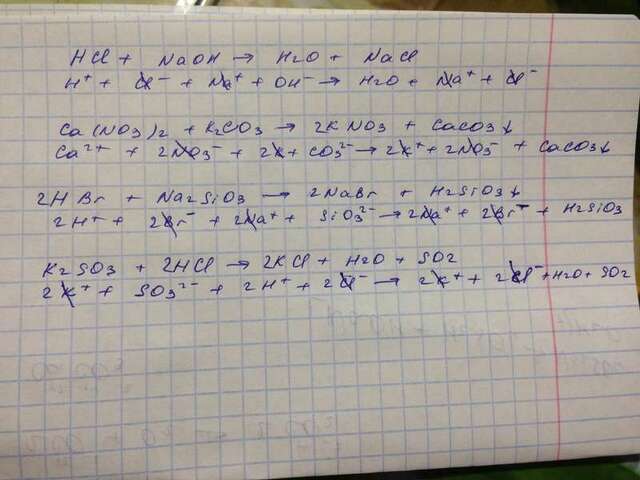 HCl + NaOH → H2O + NaCl
H⁺ + Cl⁻ + Na⁺ + OH⁻ → H2O + Na⁺ + Cl⁻
Ca(NO3)2 + K2CO3 → 2KNO3 + CaCO3↓
Ca²⁺ + 2NO3⁻ + 2K + CO3²⁻ → 2K⁺ + 2NO3⁻ + CaCO3↓
2HBr + Na2SiO3 → 2NaBr + H2SiO3↓
2H⁺ + 2Br⁻ + 2Na⁺ + SiO3²⁻ → 2Na⁺ + 2Br⁻ + H2SiO3
K2SO3 + 2HCl → 2KCl + H2O + SO2
2K⁺ + SO3²⁻ + 2H⁺ + 2Cl⁻ → 2K⁺ + 2Cl⁻ + H2O + SO2